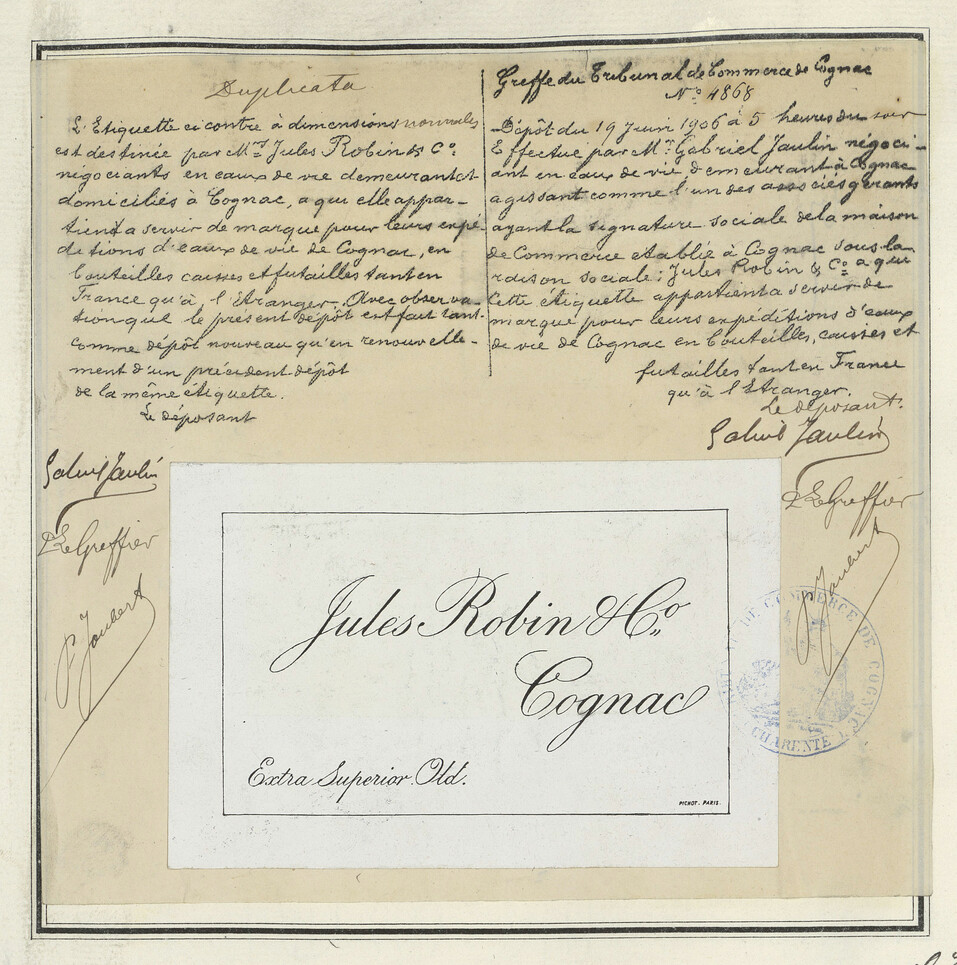 Duplicata
L'Etiquette ci contre à dimensions nouvelles
est destinée par Mrs Jules Robin & Co.
négociants en eaux de vie demeurant et
domiciliés à Cognac, a qui elle appar-
tient a servir de marque pour leurs expé-
ditions d'eaux de vie de Cognac, en
bouteilles caisses et futailles tant en
France qu'à l'Etranger. Avec observa-
tion que le présent dépôt est fait tant
comme dépôt nouveau qu'en renouvelle-
ment d'un précédent dépôt
de la même étiquette.
Le déposant
Gabriel Jaulin
Pr Le Greffier
P. Joubert
Greffe du Tribunal de Commerce de Cognac
No. 4868
Dépôt du 19 Juin 1906 à 5 heures du soir
Effectue par Mr. Gabriel Jaulin négoci-
ant en eaux de vie, demeurant à Cognac
agissant comme l'un des associés gérants
ayant la signature sociale de la maison
de Commerce établie à Cognac sous la
raison sociale; Jules Robin & Co. a qui
Cette étiquette appartient a servir de
marque pour leurs expéditions d'eaux
de vie de Cognac en bouteilles, caisses et
futailles tant en France
qu'à l'Etranger.
Le déposant.
Gabriel Jaulin
Pr Le Greffier
P. Joubert
Jules Robin & Co.
Cognac
Extra Superior Old.
PICHOT. PARIS.
DE COMMERCE DE COGNAC
CHARENTE